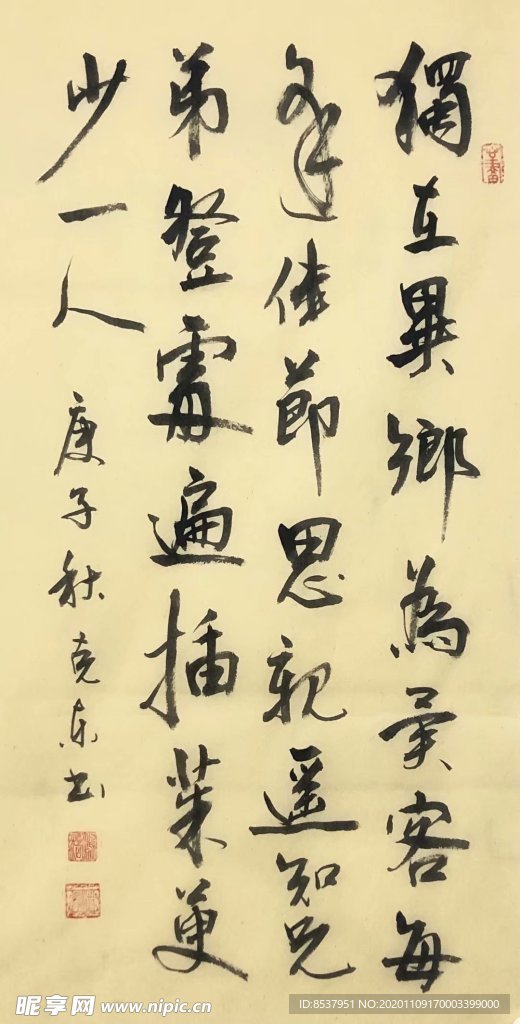 獨在異鄉為異客每
逢佳節思親遥知兄
弟登處遍插茱萸
少一人 庚子秋克东书
昵享网 www.nipic.cn
ID:8537951 NO:20201109170003399000